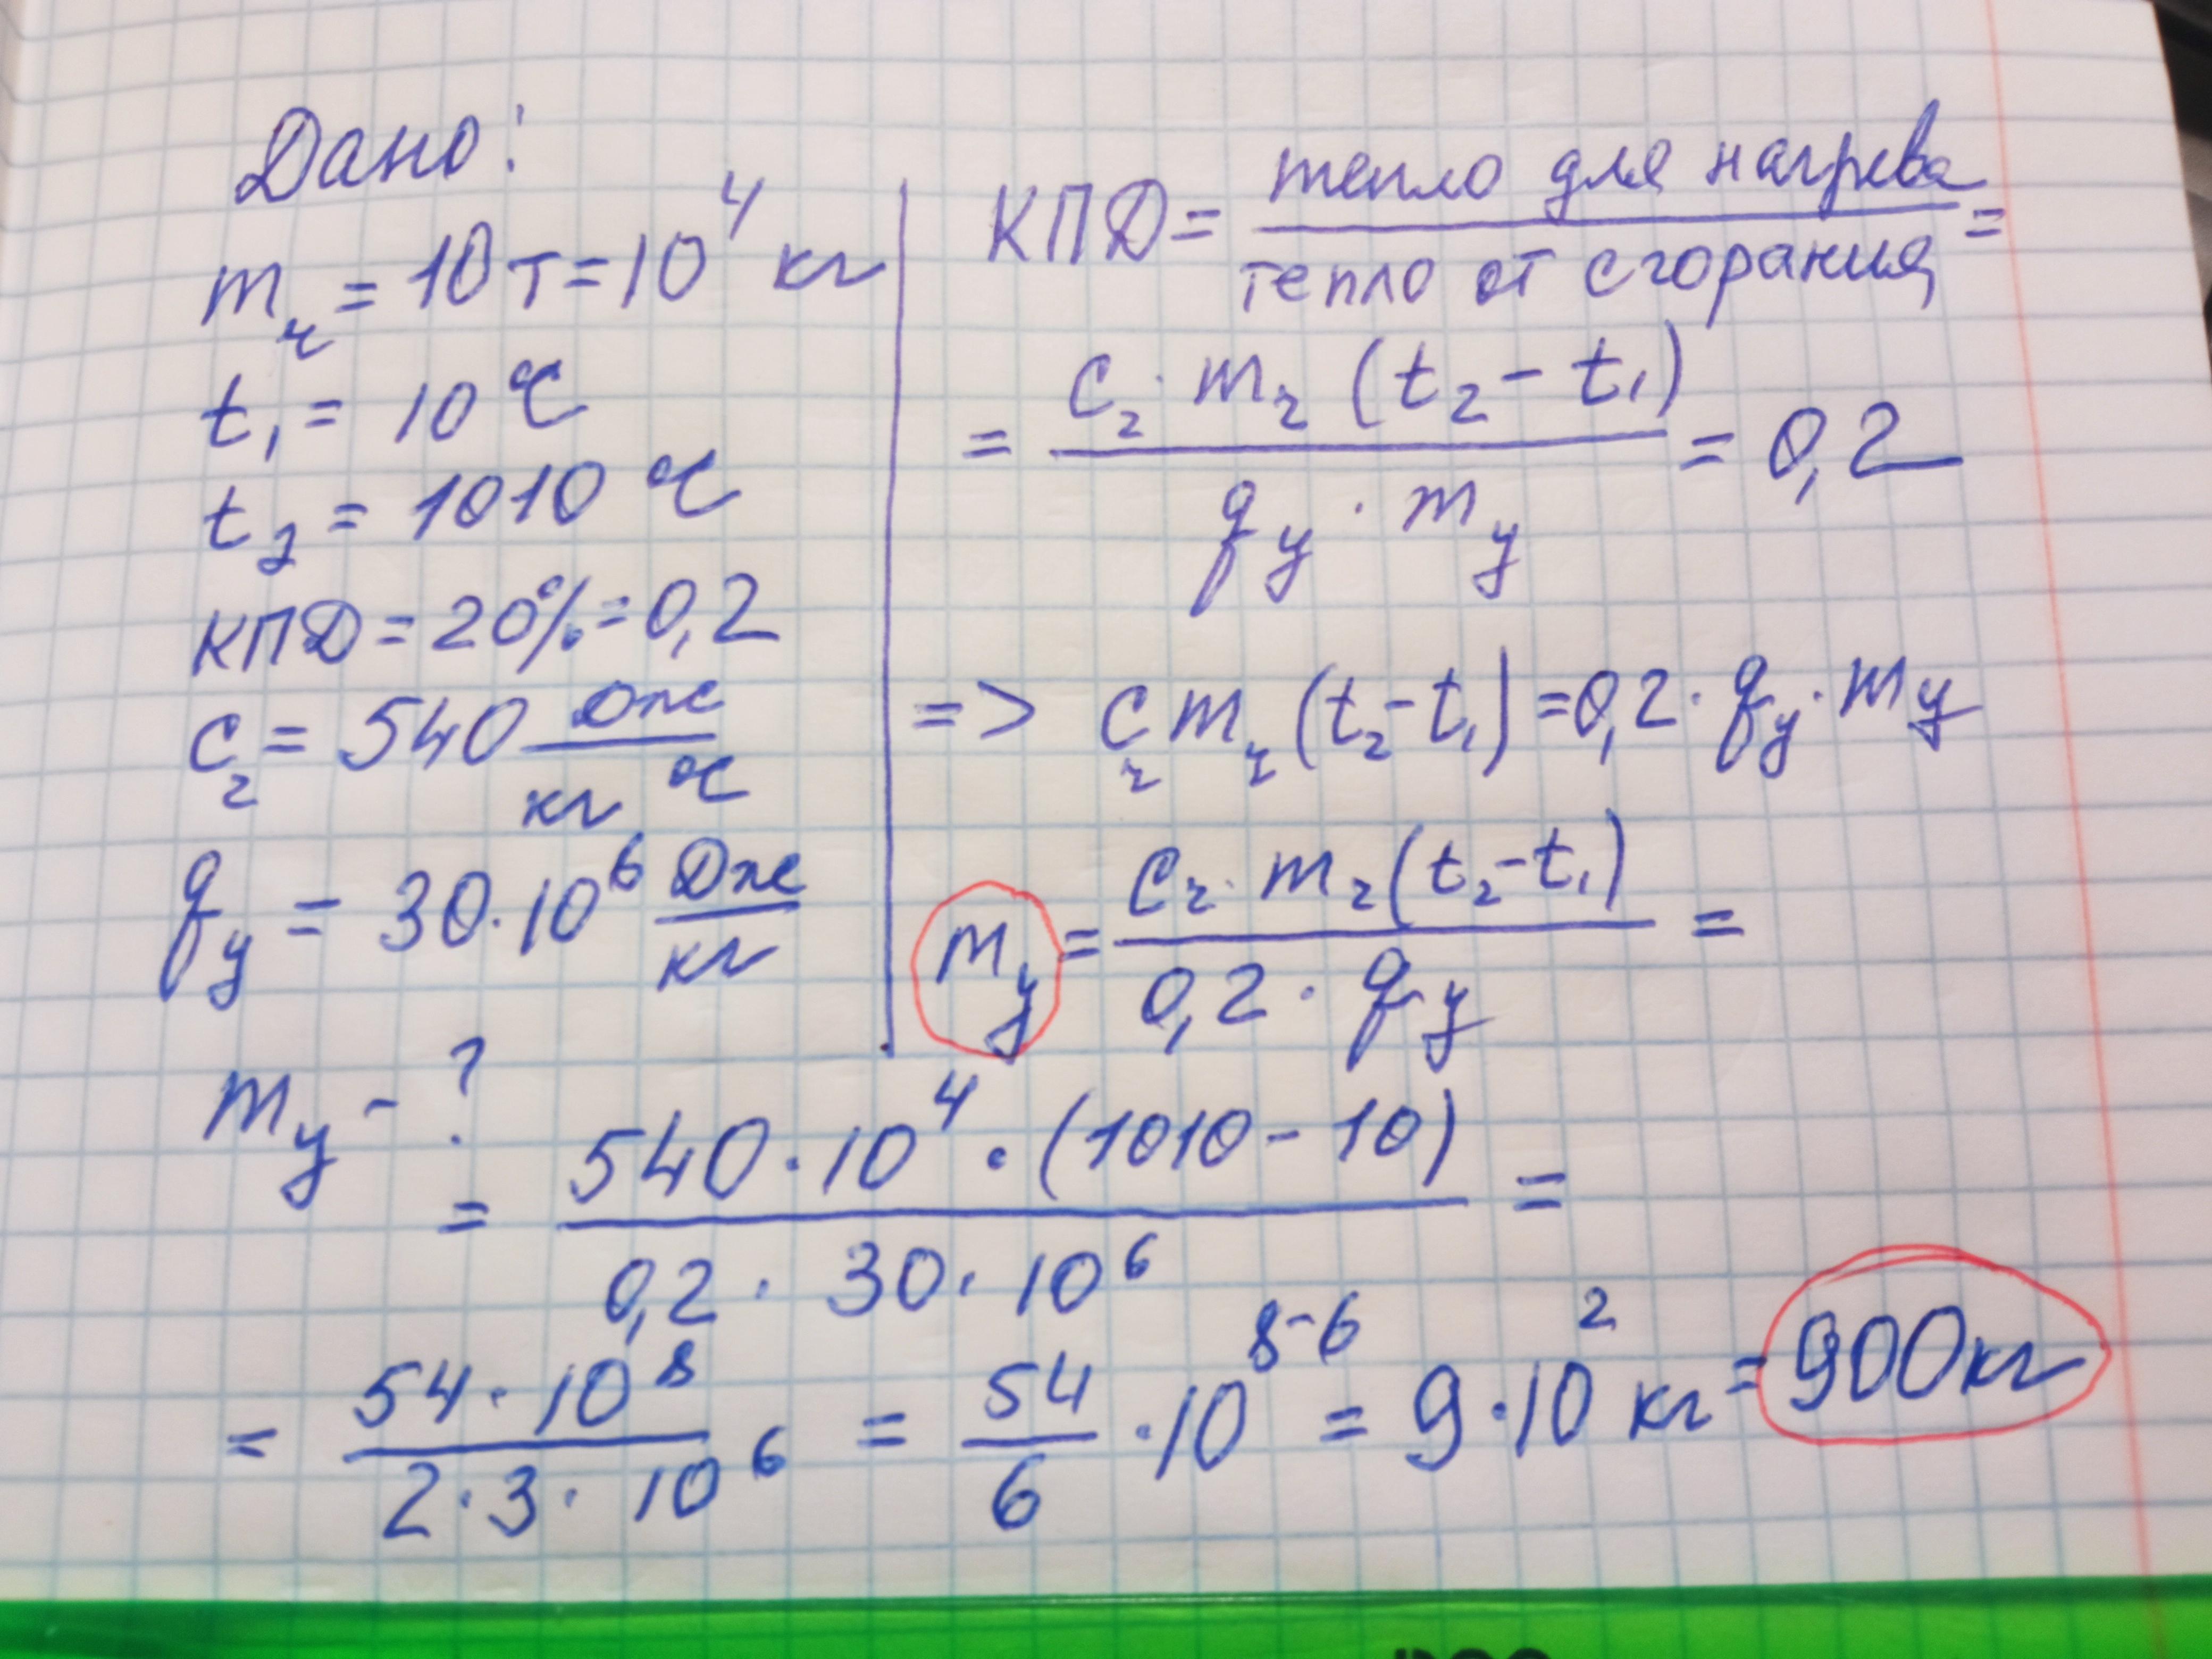 Дано:
m_ч = 10 т = 10⁴ кг
t₁ = 10 °C
t₂ = 1010 °C
КПД = 20% = 0,2
c_ч = 540 Дж / кг °C
q_у = 30·10⁶ Дж / кг
m_у - ?
КПД = тепло для нагрева / тепло от сгорания =
= c_ч · m_ч (t₂ - t₁) / q_у · m_у = 0,2
=> c_ч m_ч (t₂ - t₁) = 0,2 · q_у · m_у
m_у = c_ч · m_ч (t₂ - t₁) / 0,2 · q_у =
= 540 · 10⁴ · (1010 - 10) / 0,2 · 30 · 10⁶ =
= 54 · 10⁸ / 2 · 3 · 10⁶ = 54 / 6 · 10⁸⁻⁶ = 9 · 10² кг = 900 кг